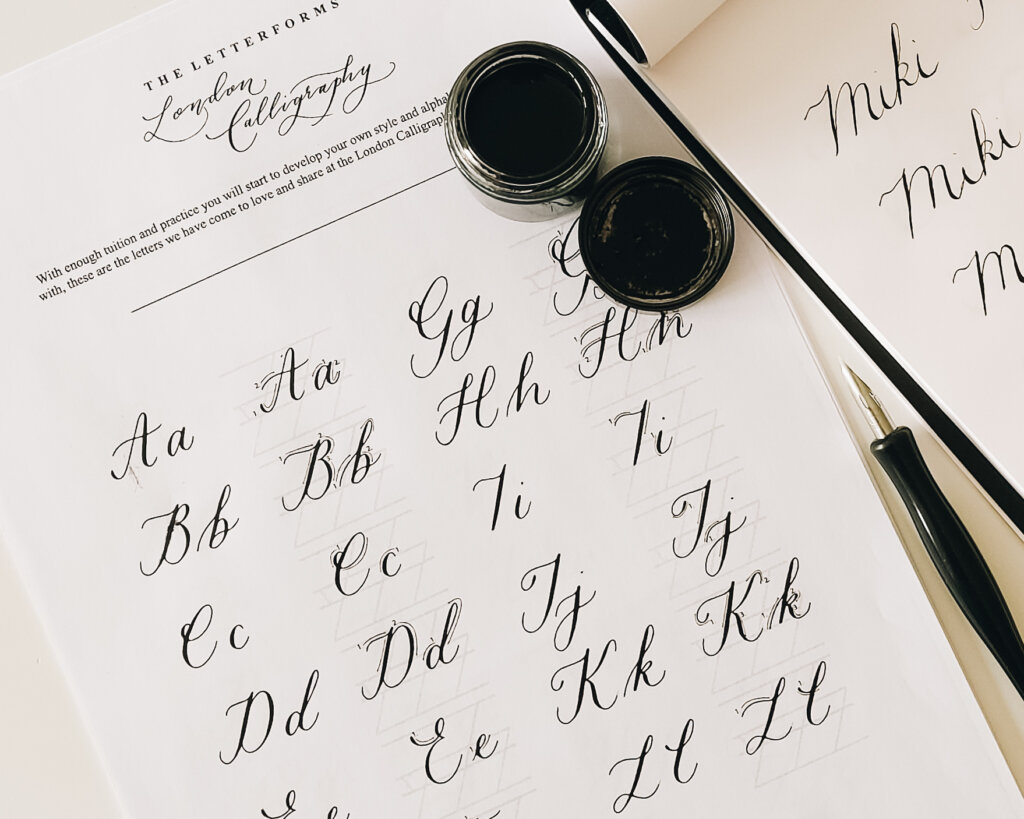 THE LETTERFORMS
London
Calligraphy
With enough tuition and practice you will start to develop your own style and
with, these are the letters we have come to love and share at the London
Aa Aa Gg G
Bb Bb Hh Hh
Cc Cc Ii Ii
Dd Dd Jj Jj
Ee Ee Kk Kk
Ll Ll
Miki
Miki
M